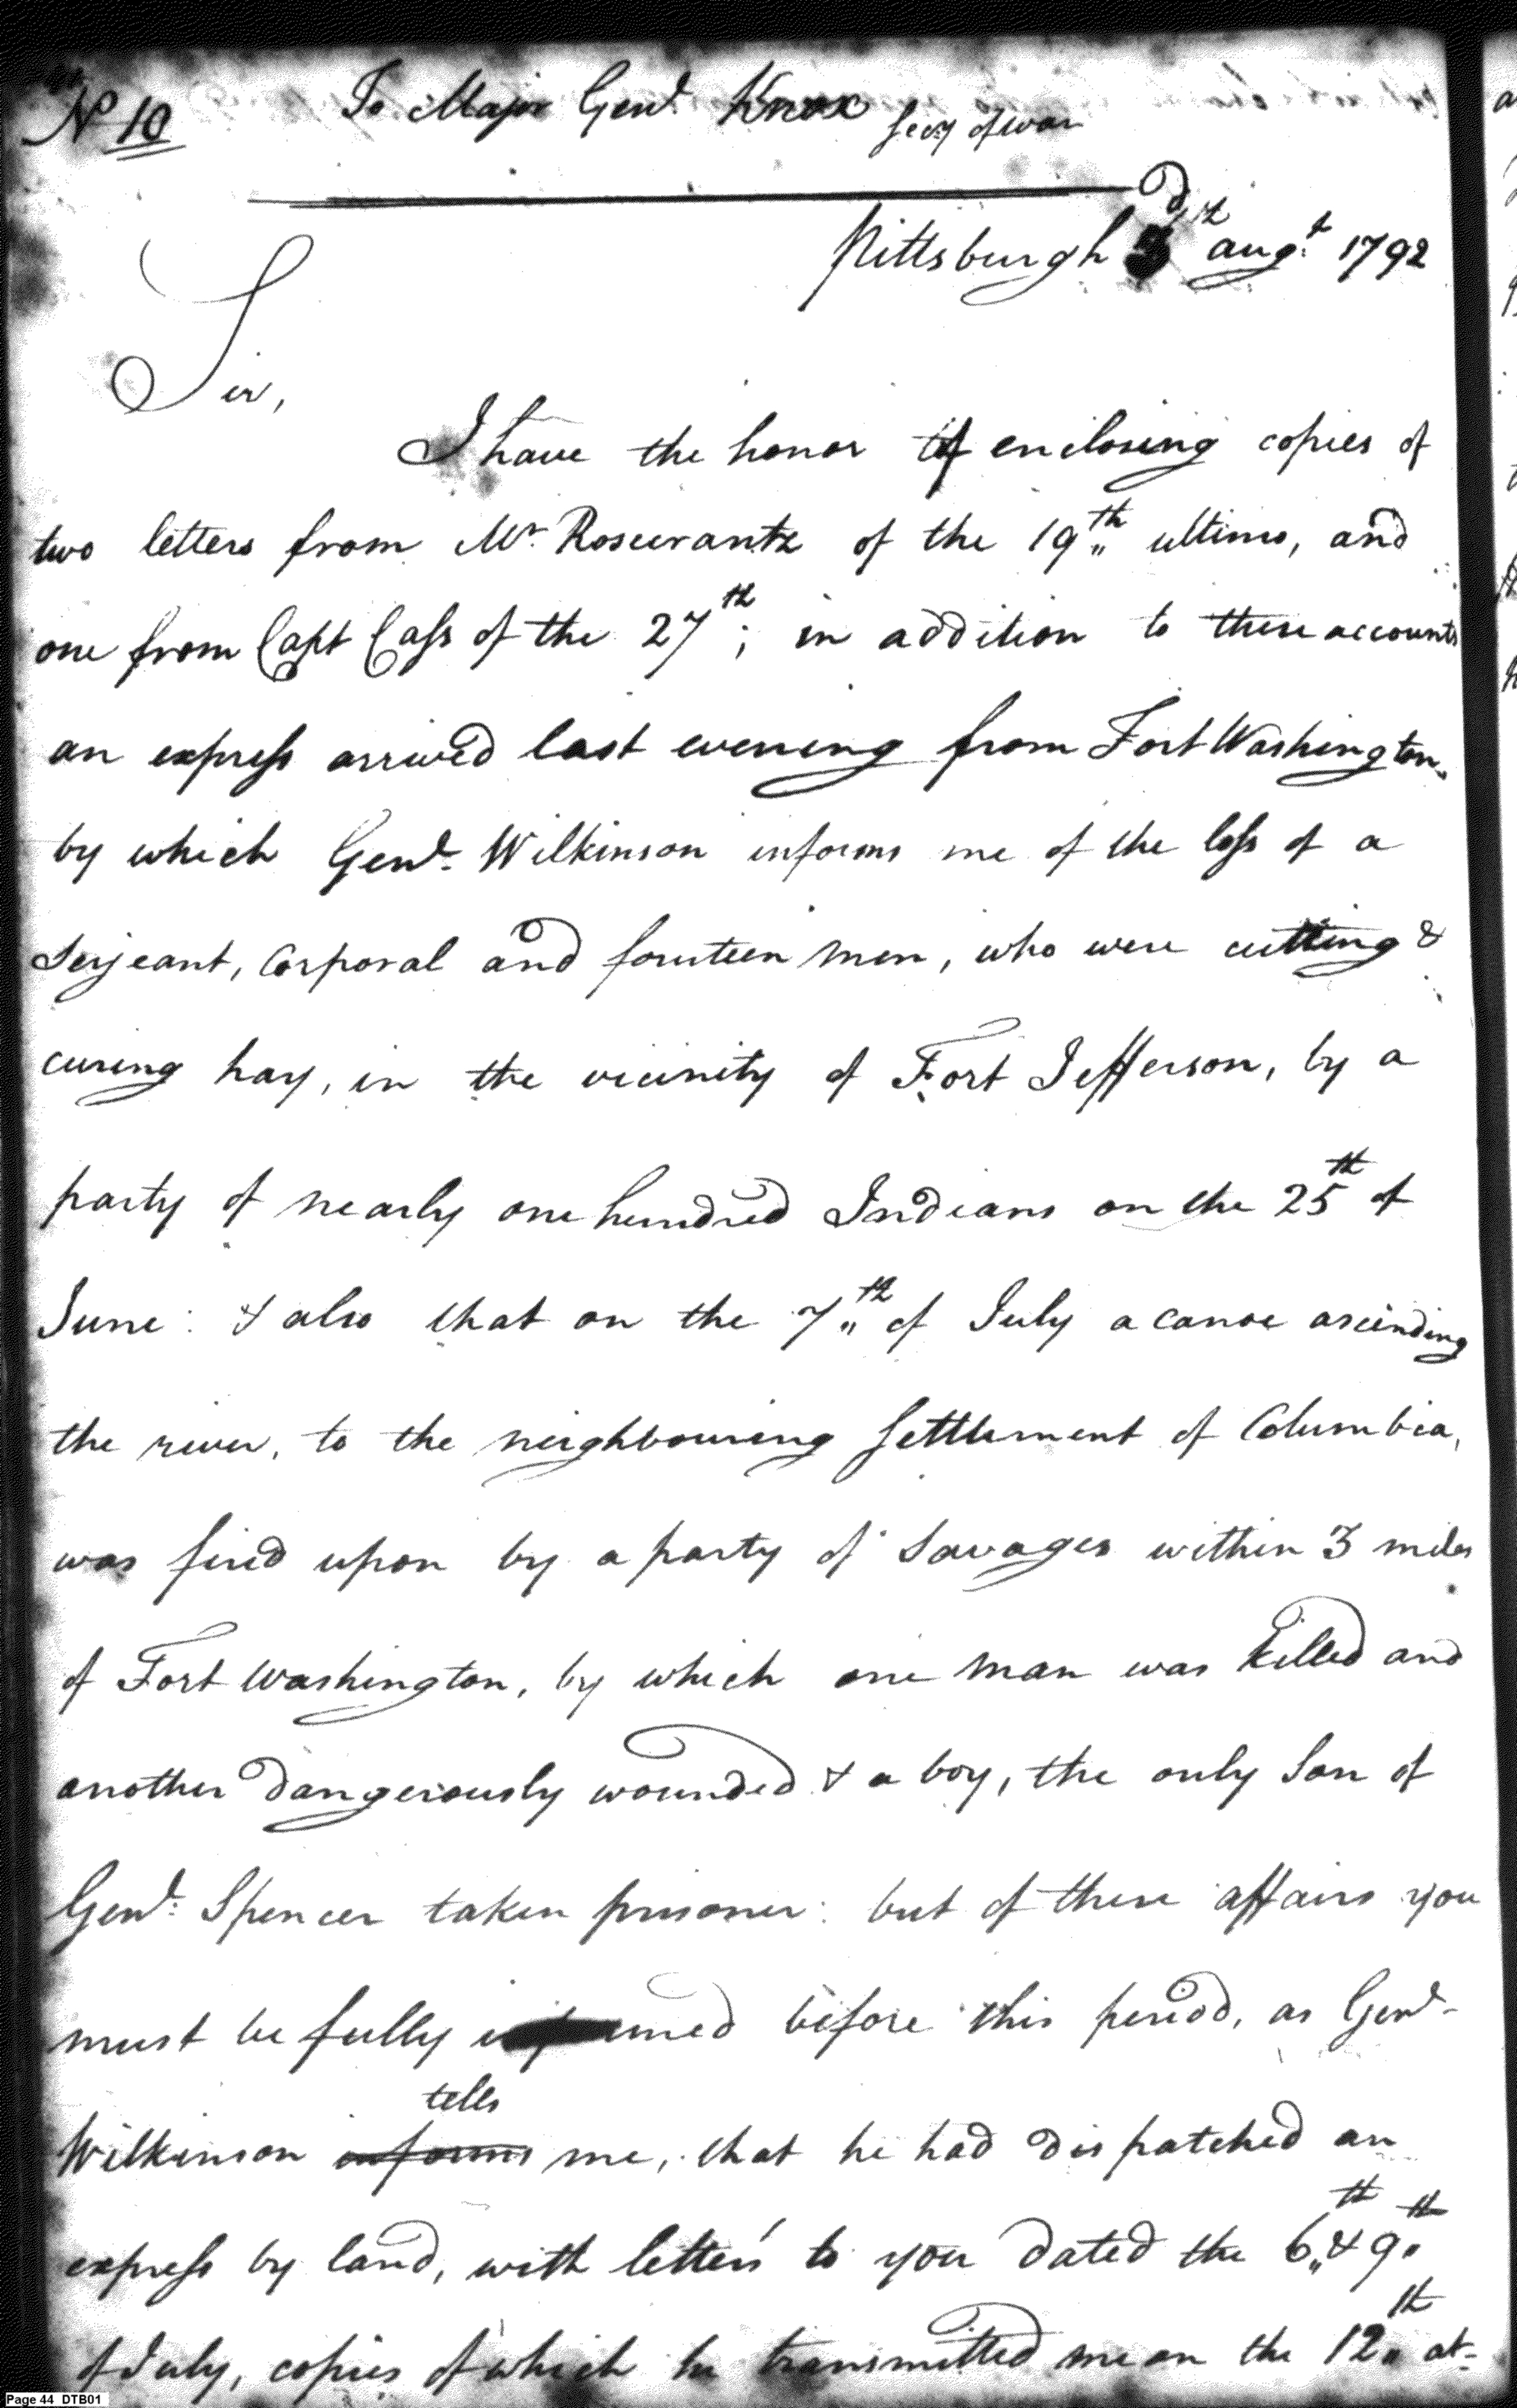 No 10 To Major Genl. Knox Secy of war
Pittsburgh 3d augt. 1792
Sir,
I have the honor of enclosing copies of
two letters from Mr. Rosecrantz of the 19th ultimo, and
one from Capt Cass of the 27th; in addition to these accounts
an express arrived last evening from Fort Washington,
by which Genl. Wilkinson informs me of the loss of a
Serjeant, Corporal and fourteen men, who were cutting &
curing hay, in the vicinity of Fort Jefferson, by a
party of nearly one hundred Indians on the 25th of
June: & also that on the 7th of July a canoe ascending
the river, to the neighbouring Settlement of Columbia,
was fired upon by a party of Savages within 3 miles
of Fort Washington, by which one man was killed and
another dangerously wounded & a boy, the only Son of
Genl. Spencer taken prisoner: but of these affairs you
must be fully informed before this period, as Genl.
Wilkinson informs tells me, that he had dispatched an
express by land, with letters to you dated the 6th & 9th
of July, copies of which he transmitted me on the 12th at-
Page 44 DTB01